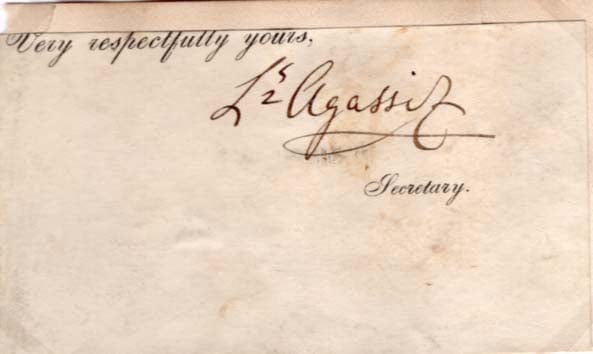 Very respectfully yours,
Ls Agassiz
Secretary.